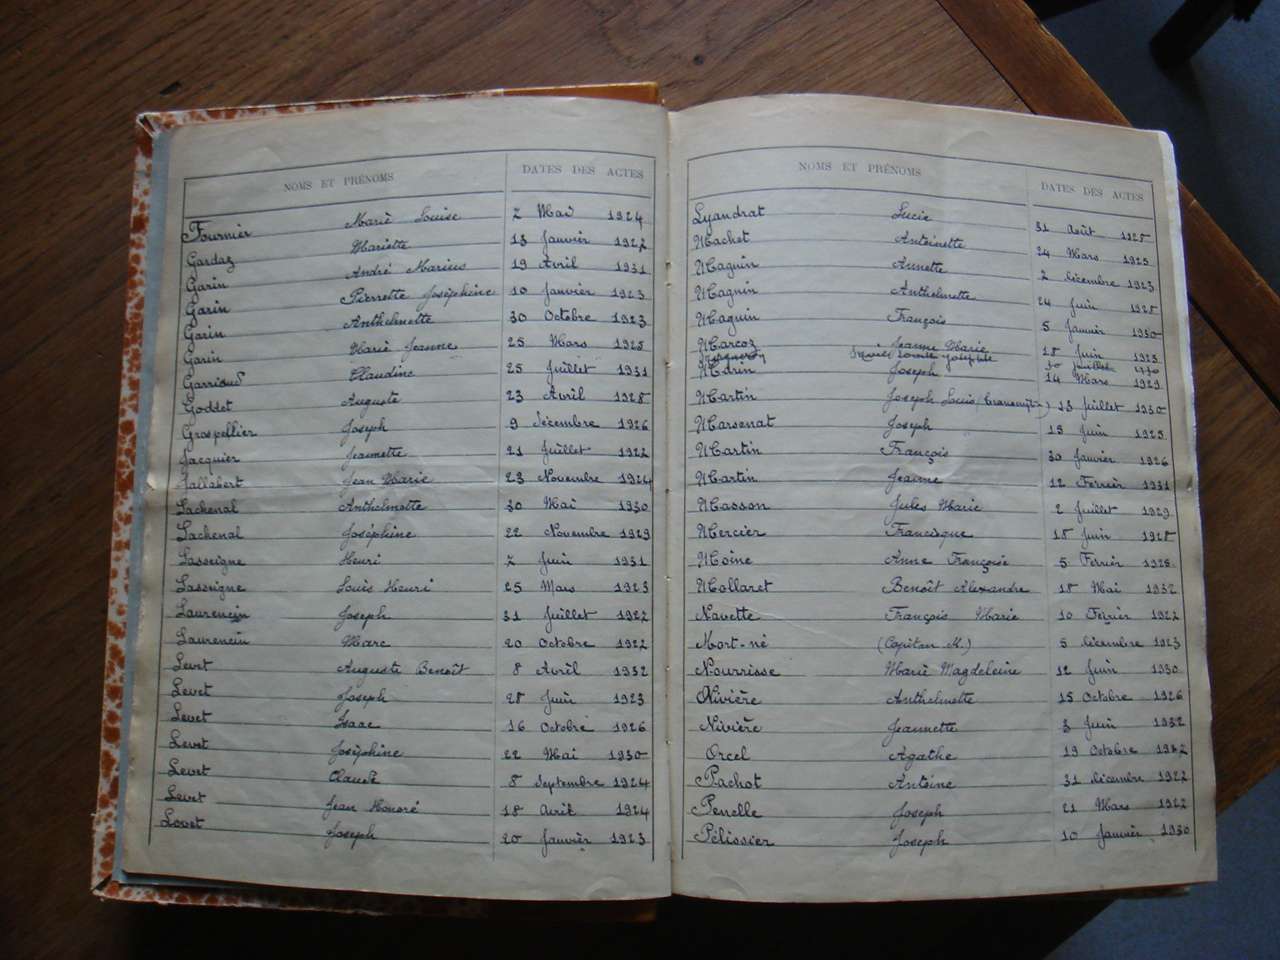 NOMS ET PRÉNOMS DATES DES ACTES
Fournier Marie Louise 7 Mai 1924
Gardaz Mariette 13 Janvier 1922
Garin André Marius 19 Avril 1931
Garin Pierrette Joséphine 10 Janvier 1923
Garin Anthelmette 30 Octobre 1923
Garin Marie Jeanne 25 Mars 1928
Garrioud Claudine 25 Juillet 1931
Goddet Auguste 23 Avril 1928
Grospellier Joseph 9 Décembre 1926
Jacquier Jeannette 21 Juillet 1922
Jallabert Jean Marie 23 Novembre 1924
Lachenal Anthelmette 30 Mai 1930
Lachenal Joséphine 22 Novembre 1929
Lasseigne Henri 7 Juin 1931
Lasseigne Louis Henri 25 Mars 1923
Laurencin Joseph 31 Juillet 1922
Laurencin Marc 20 Octobre 1922
Levet Auguste Benoît 8 Avril 1932
Levet Joseph 28 Juin 1923
Levet Isaac 16 Octobre 1926
Levet Joséphine 22 Mai 1930
Levet Claude 8 Septembre 1924
Levet Jean Honoré 18 Avril 1924
Lovet Joseph 20 Janvier 1923
NOMS ET PRÉNOMS DATES DES ACTES
Lyandrat Lucie 31 Août 1928
Machet Antoinette 24 Mars 1925
Magnin Annette 2 décembre 1923
Magnin Anthelmette 24 Juin 1928
Magnin François 5 Janvier 1930
Marcoz Jeanne Marie 18 Juin 1925
Joseph 14 Mars 1929
Martin Joseph Louis 13 Juillet 1930
Marsenat Joseph 15 Juin 1925
Martin François 30 Janvier 1926
Martin Jeanne 12 Février 1931
Masson Jules Marie 2 Juillet 1929
Mercier Francisque 18 Juin 1928
Moine Anne Françoise 5 Février 1928
Mollaret Benoît Alexandre 18 Mai 1932
Navette François Marie 10 Février 1922
Mort-né (Capitan M.) 5 décembre 1923
Nourrisse Marie Magdeleine 12 Juin 1930
Nivière Anthelmette 15 Octobre 1926
Nivière Jeannette 3 Juin 1932
Orcel Agathe 19 Octobre
Pachot Antoine 31 décembre 1922
Penelle Joseph 21 Mars 1922
Pélissier Joseph 10 Janvier 1930